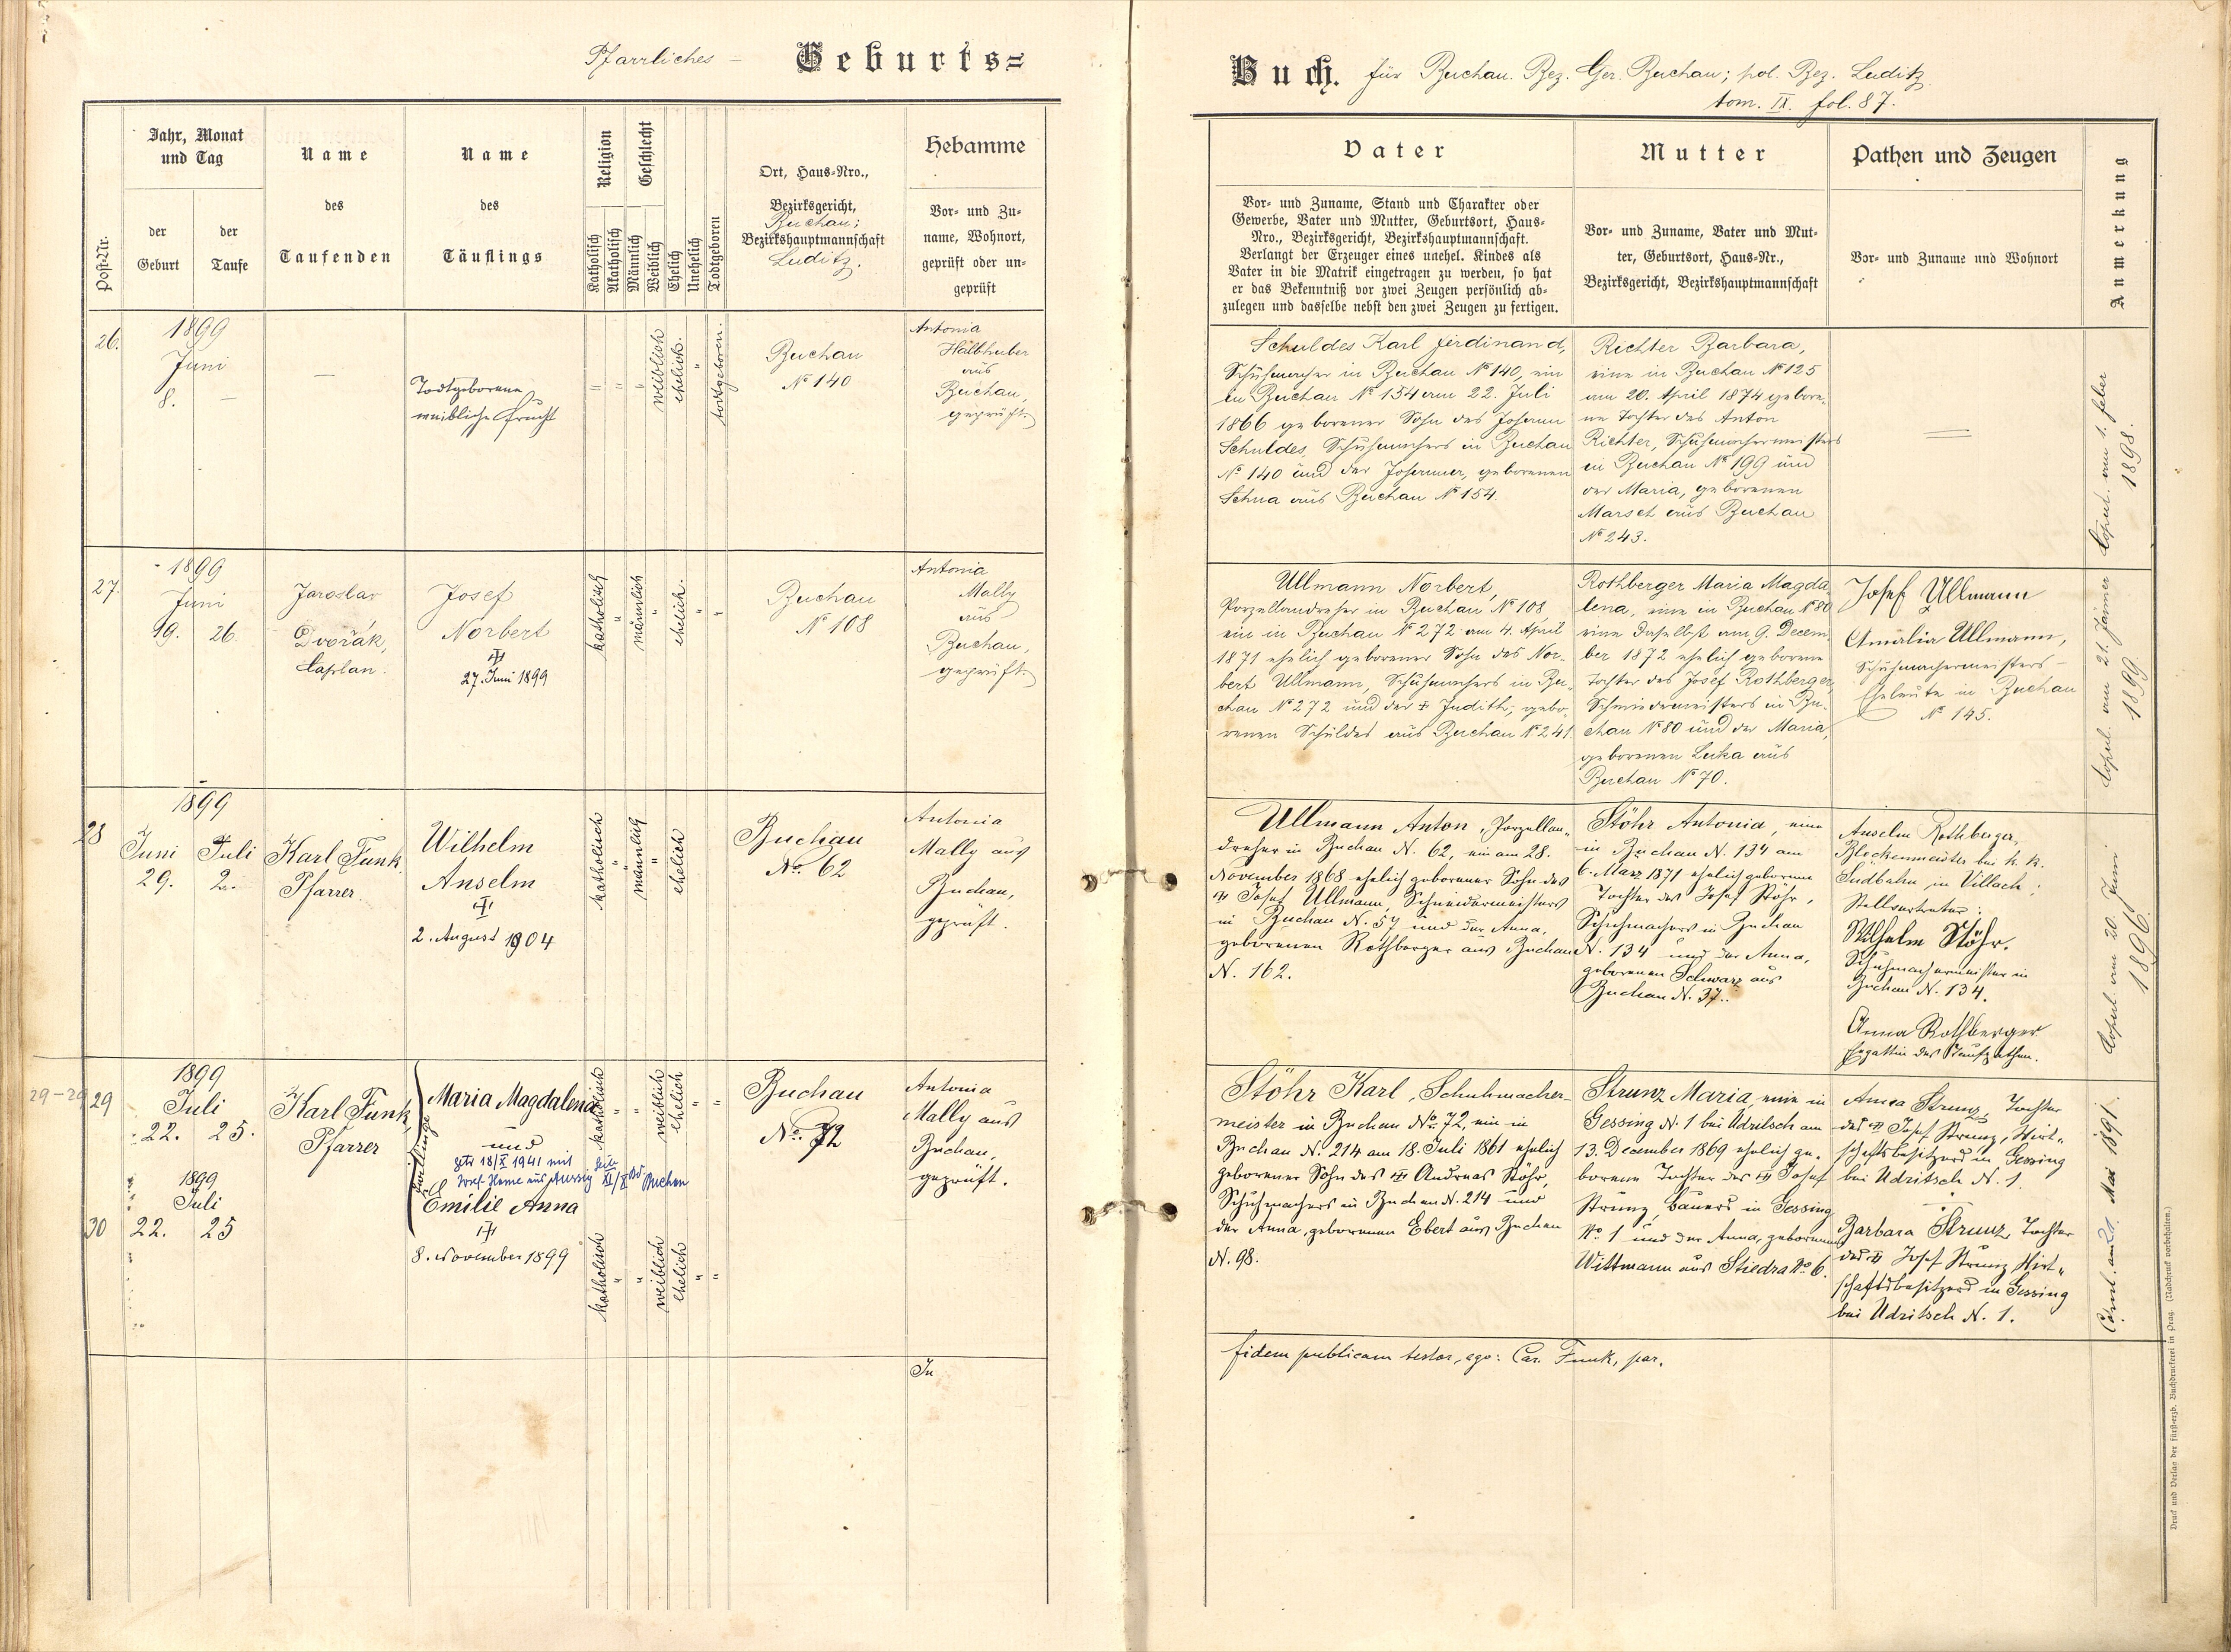 Pfarrliches – Geburts=
Buch. für Buchau. Bez. Ger. Buchau; pol. Bez. Luditz.
tom. IX. fol. 87.
Post-Nr.
Jahr, Monat
und Tag
der
Geburt
der
Taufe
Name
des
Taufenden
Name
des
Täuflings
Religion
Katholisch
Akatholisch
Geschlecht
Männlich
Weiblich
Ehelich
Unehelich
Todtgeboren
Ort, Haus-Nro.,
Bezirksgericht,
Buchau;
Bezirkshauptmannschaft
Luditz.
Hebamme
Vor- und Zu-
name, Wohnort,
geprüft oder un-
geprüft
Vater
Vor- und Zuname, Stand und Charakter oder
Gewerbe, Vater und Mutter, Geburtsort, Haus-
Nro., Bezirksgericht, Bezirkshauptmannschaft.
Verlangt der Erzeuger eines unehel. Kindes als
Vater in die Matrik eingetragen zu werden, so hat
er das Bekenntniß vor zwei Zeugen persönlich ab-
zulegen und dasselbe nebst den zwei Zeugen zu fertigen.
Mutter
Vor- und Zuname, Vater und Mut-
ter, Geburtsort, Haus-Nr.,
Bezirksgericht, Bezirkshauptmannschaft
Pathen und Zeugen
Vor- und Zuname und Wohnort
Anmerkung
26.
1899
Juni
8. –
–
Todtgeborene
weibliche Frucht
weiblich
ehelich.
todtgeboren.
Buchau
No 140
Antonia
Halbhuber
aus
Buchau,
geprüft.
Schuldes Karl Ferdinand,
Schuhmacher in Buchau No 140, ein
in Buchau No 154 am 22. Juli
1866 geborener Sohn des Johann
Schuldes, Schuhmachers in Buchau
No 140 und der Johanna, geborenen
Schua aus Buchau No 154.
Richter Barbara,
eine in Buchau No 125
am 20. April 1874 gebore-
ne Tochter des Anton
Richter, Schuhmachermeisters
in Buchau No 199 und
der Maria, geborenen
Marsch aus Buchau
No 243.
Copul. am 1. feber
1898.
27.
1899
Juni
19. 26.
Jaroslav
Dvořák,
Caplan.
Josef
Norbert
27. Juni 1899
katholisch
männlich
ehelich.
Buchau
No 108
Antonia
Mally
aus
Buchau,
geprüft.
Ullmann Norbert,
Porzellandreher in Buchau No 108
ein in Buchau No 272 am 4. April
1871 ehelich geborener Sohn des Nor-
bert Ullmann, Schuhmachers in Bu-
chau No 272 und der Judith, gebo-
renen Schuldes aus Buchau No 241.
Rothberger Maria Magda
lena, eine in Buchau No 80
eine daselbst am 9. Decem-
ber 1872 ehelich geborene
Tochter des Josef Rothberger,
Schmiedemeisters in Bu-
chau No 80 und der Maria,
geborenen Luka aus
Buchau No 70.
Josef Ullmann
Amalia Ullmann,
Schuhmachermeisters-
Eheleute in Buchau
No 145.
Copul. am 21. Jänner
1899
28
1899
Juni Juli
29. 2.
Karl Funk,
Pfarrer.
Wilhelm
Anselm
2. August 1904
katholisch
männlich
ehelich
Buchau
No. 62
Antonia
Mally aus
Buchau,
geprüft.
Ullmann Anton, Porzellan-
dreher in Buchau N. 62, ein am 28.
November 1868 ehelich geborener Sohn des
Josef Ullmann, Schneidermeisters
in Buchau N. 57 und der Anna,
geborenen Rothberger aus Buchau
N. 162.
Stöhr Antonia, eine
in Buchau N. 134 am
6. März 1871 ehelich geborene
Tochter des Josef Stöhr,
Schuhmachers in Buchau
N. 134 und der Anna,
geborenen Schwarz aus
Buchau N. 37.
Anselm Rothberger,
Blockenmeister bei k. k.
Südbahn in Villach;
Stellvertreter:
Wilhelm Stöhr.
Schuhmachermeister in
Buchau N. 134.
Anna Rothberger
Ehegattin des Taufpathen.
Copul. am 20. Juni
1896.
29-29
29
1899
Juli
22. 25.
Karl Funk,
Pfarrer
Zwillinge
Maria Magdalena
und
getr 18/X 1941 mit
Josef Heme aus Aussig
Buchau
katholisch
weiblich
ehelich
Buchau
No. 72
Antonia
Mally aus
Buchau,
geprüft.
30
1899
Juli
22. 25
Emilie Anna
8. November 1899
katholisch
weiblich
ehelich
Stöhr Karl, Schuhmacher-
meister in Buchau No. 72, ein in
Buchau N. 214 am 18. Juli 1861 ehelich
geborener Sohn des Andreas Stöhr,
Schuhmachers in Buchau N. 214 und
der Anna, geborenen Ebert aus Buchau
N. 98.
Strunz Maria eine in
Gessing N. 1 bei Udritsch am
13. December 1869 ehelich ge-
borene Tochter des Josef
Strunz, Bauers in Gessing
No. 1 und der Anna, geborenen
Wittmann aus Stiedra No. 6.
Anna Strunz, Tochter
des Josef Strunz, Wirt-
schaftsbesitzers in Gessing
bei Udritsch N. 1.
Barbara Strunz, Tochter
des Josef Strunz Wirt-
schaftsbesitzers in Gessing
bei Udritsch N. 1.
Copul. am 21. Mai 1891.
In
fidem publicam testor, ego: Car. Funk, par.
Druck und Verlag der fürst-erzb. Buchdruckerei in Prag. (Nachdruck vorbehalten.)